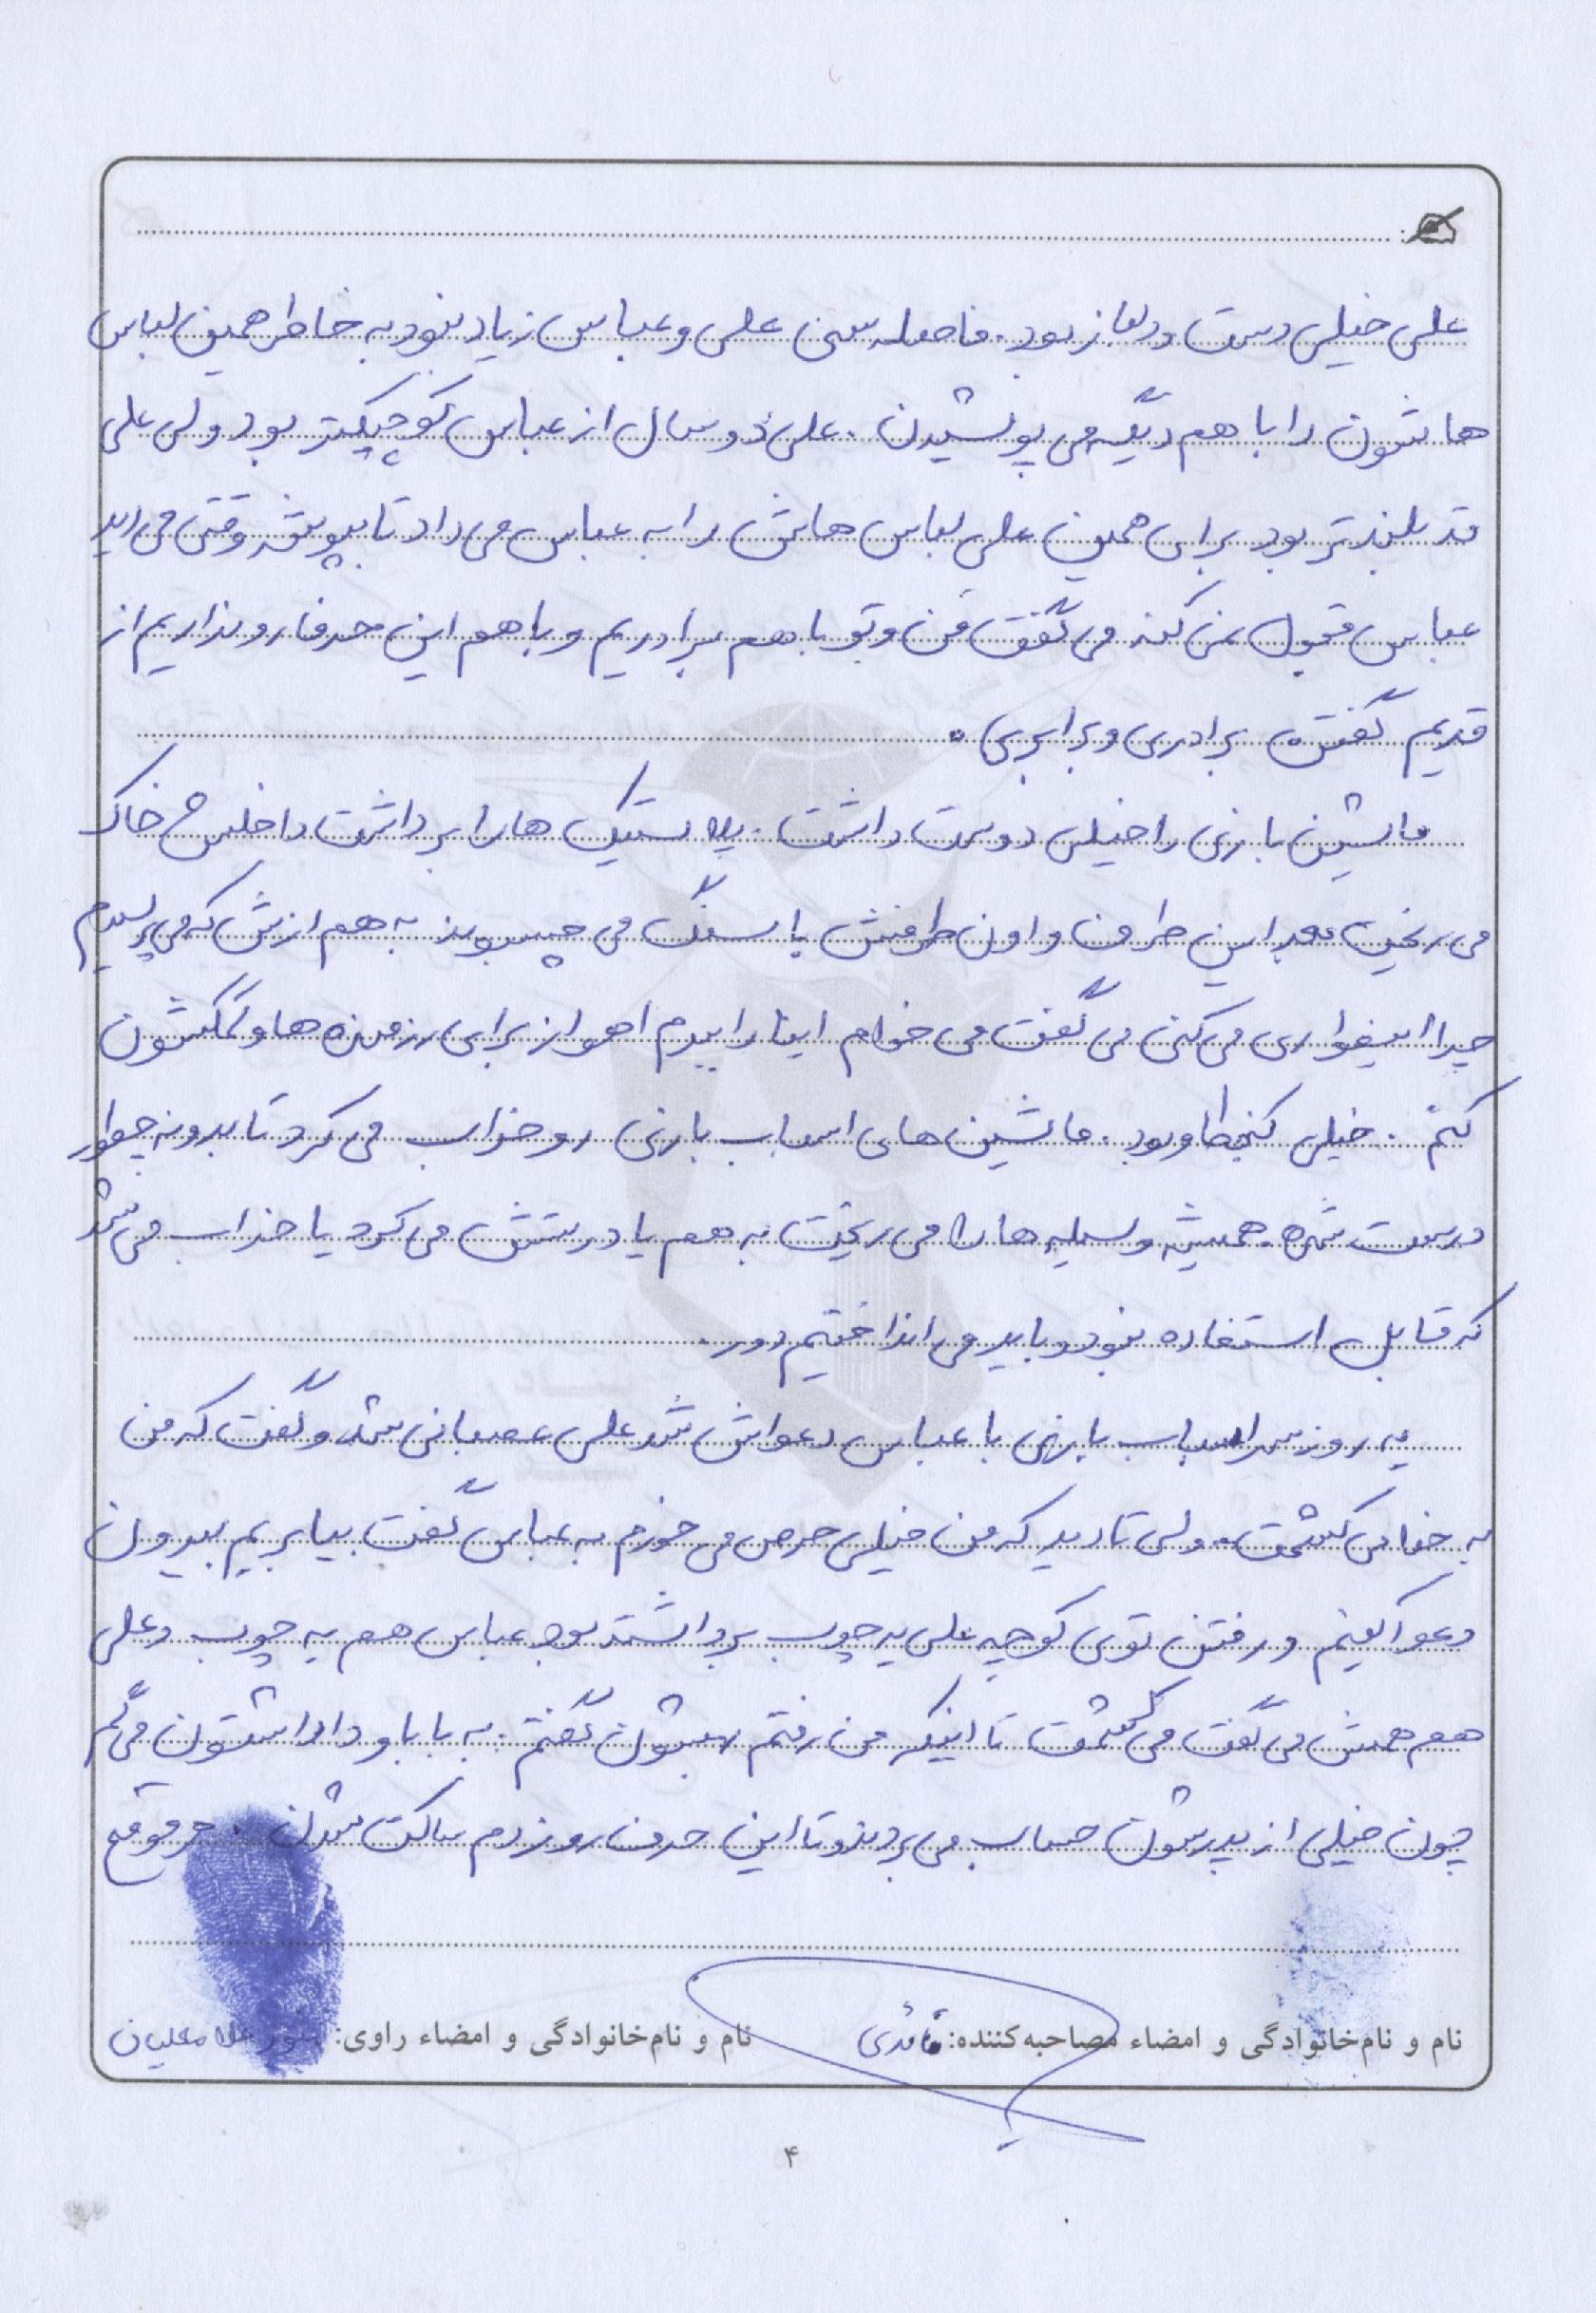 علی خیلی دست و دلباز بود. فاصله سن علی و عباس زیاد نبود به خاطر همین لباس
هاشون را با هم دیگه می پوشیدن. علی دو سال از عباس کوچیکتر بود ولی علی
قد بلندتر بود برای همین علی لباس هاش را به عباس می داد تا بپوشه وقتی می دید
عباس قبول نمی کنه می گفت من و تو با هم برادریم و با هم این حرفا رو نداریم از
قدیم گفتن برادری و برابری.
ماشین بازی را خیلی دوست داشت. پلاستیک ها را برداشت داخلش خاک
می ریخت بعد این طرف و اون طرفش با سنگ می چسبوند به هم ازش که می پرسیدم
چرا اینطوری می کنی می گفت می خوام اینا را ببرم اهواز برای رزمنده ها و کمکشون
کنم. خیلی کنجکاو بود. ماشین های اسباب بازی رو خراب می کرد تا بدونه چطور
درست شده. همیشه وسیله ها را می ریخت به هم یا درستش می کرد یا خراب می شد
که قابل استفاده نبود و باید می انداختیم دور.
یه روز سر اسباب بازی با عباس دعواش شد علی عصبانی شد و گفت که من
به خدا می کشمت. ولی تا دید که من خیلی حرص می خورم به عباس گفت بیا بریم بیرون
دعوا کنیم و رفتن توی کوچه علی یه چوب برداشته بود عباس هم یه چوب و علی
هم همش می گفت می کشمت تا اینکه من رفتم بهشون گفتم. به بابا و داداشتون می گم
چون خیلی از پدرشون حساب می بردند و تا این حرف رو زدم ساکت شدن. هر موقع
نام و نام‌خانوادگی و امضاء مصاحبه‌کننده: نام و نام‌خانوادگی و امضاء راوی:
۴